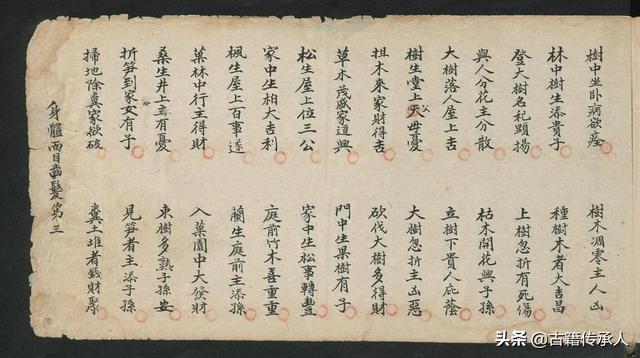 樹中坐卧病欲痊　樹木凋零主人凶
林中樹生添貴子　種樹木者大吉昌
登大樹名秕顕揚　上樹忽折有死傷
與人分花主分散　枯木開花興子孫
大樹落人屋上吉　立樹下貴人庇蔭
樹生堂上父母憂　大樹忽折主凶惡
担木来家財得吉　砍伐大樹多得財
草木茂盛家道興　門中生果樹有子
松生屋上位三公　家中生松事轉豐
家中生柏大吉利　庭前竹木喜重重
楓生屋上百事遂　蘭生庭前主添孫
菓林中行主得財　入菓園中大發財
桑生井上主有憂　束樹多熟子孫安
折笋到家女有子　見笋者主添子孫
掃地除糞家欲破　糞土堆者錢財聚
身體面目齒髮第三
头条 @古籍传承人